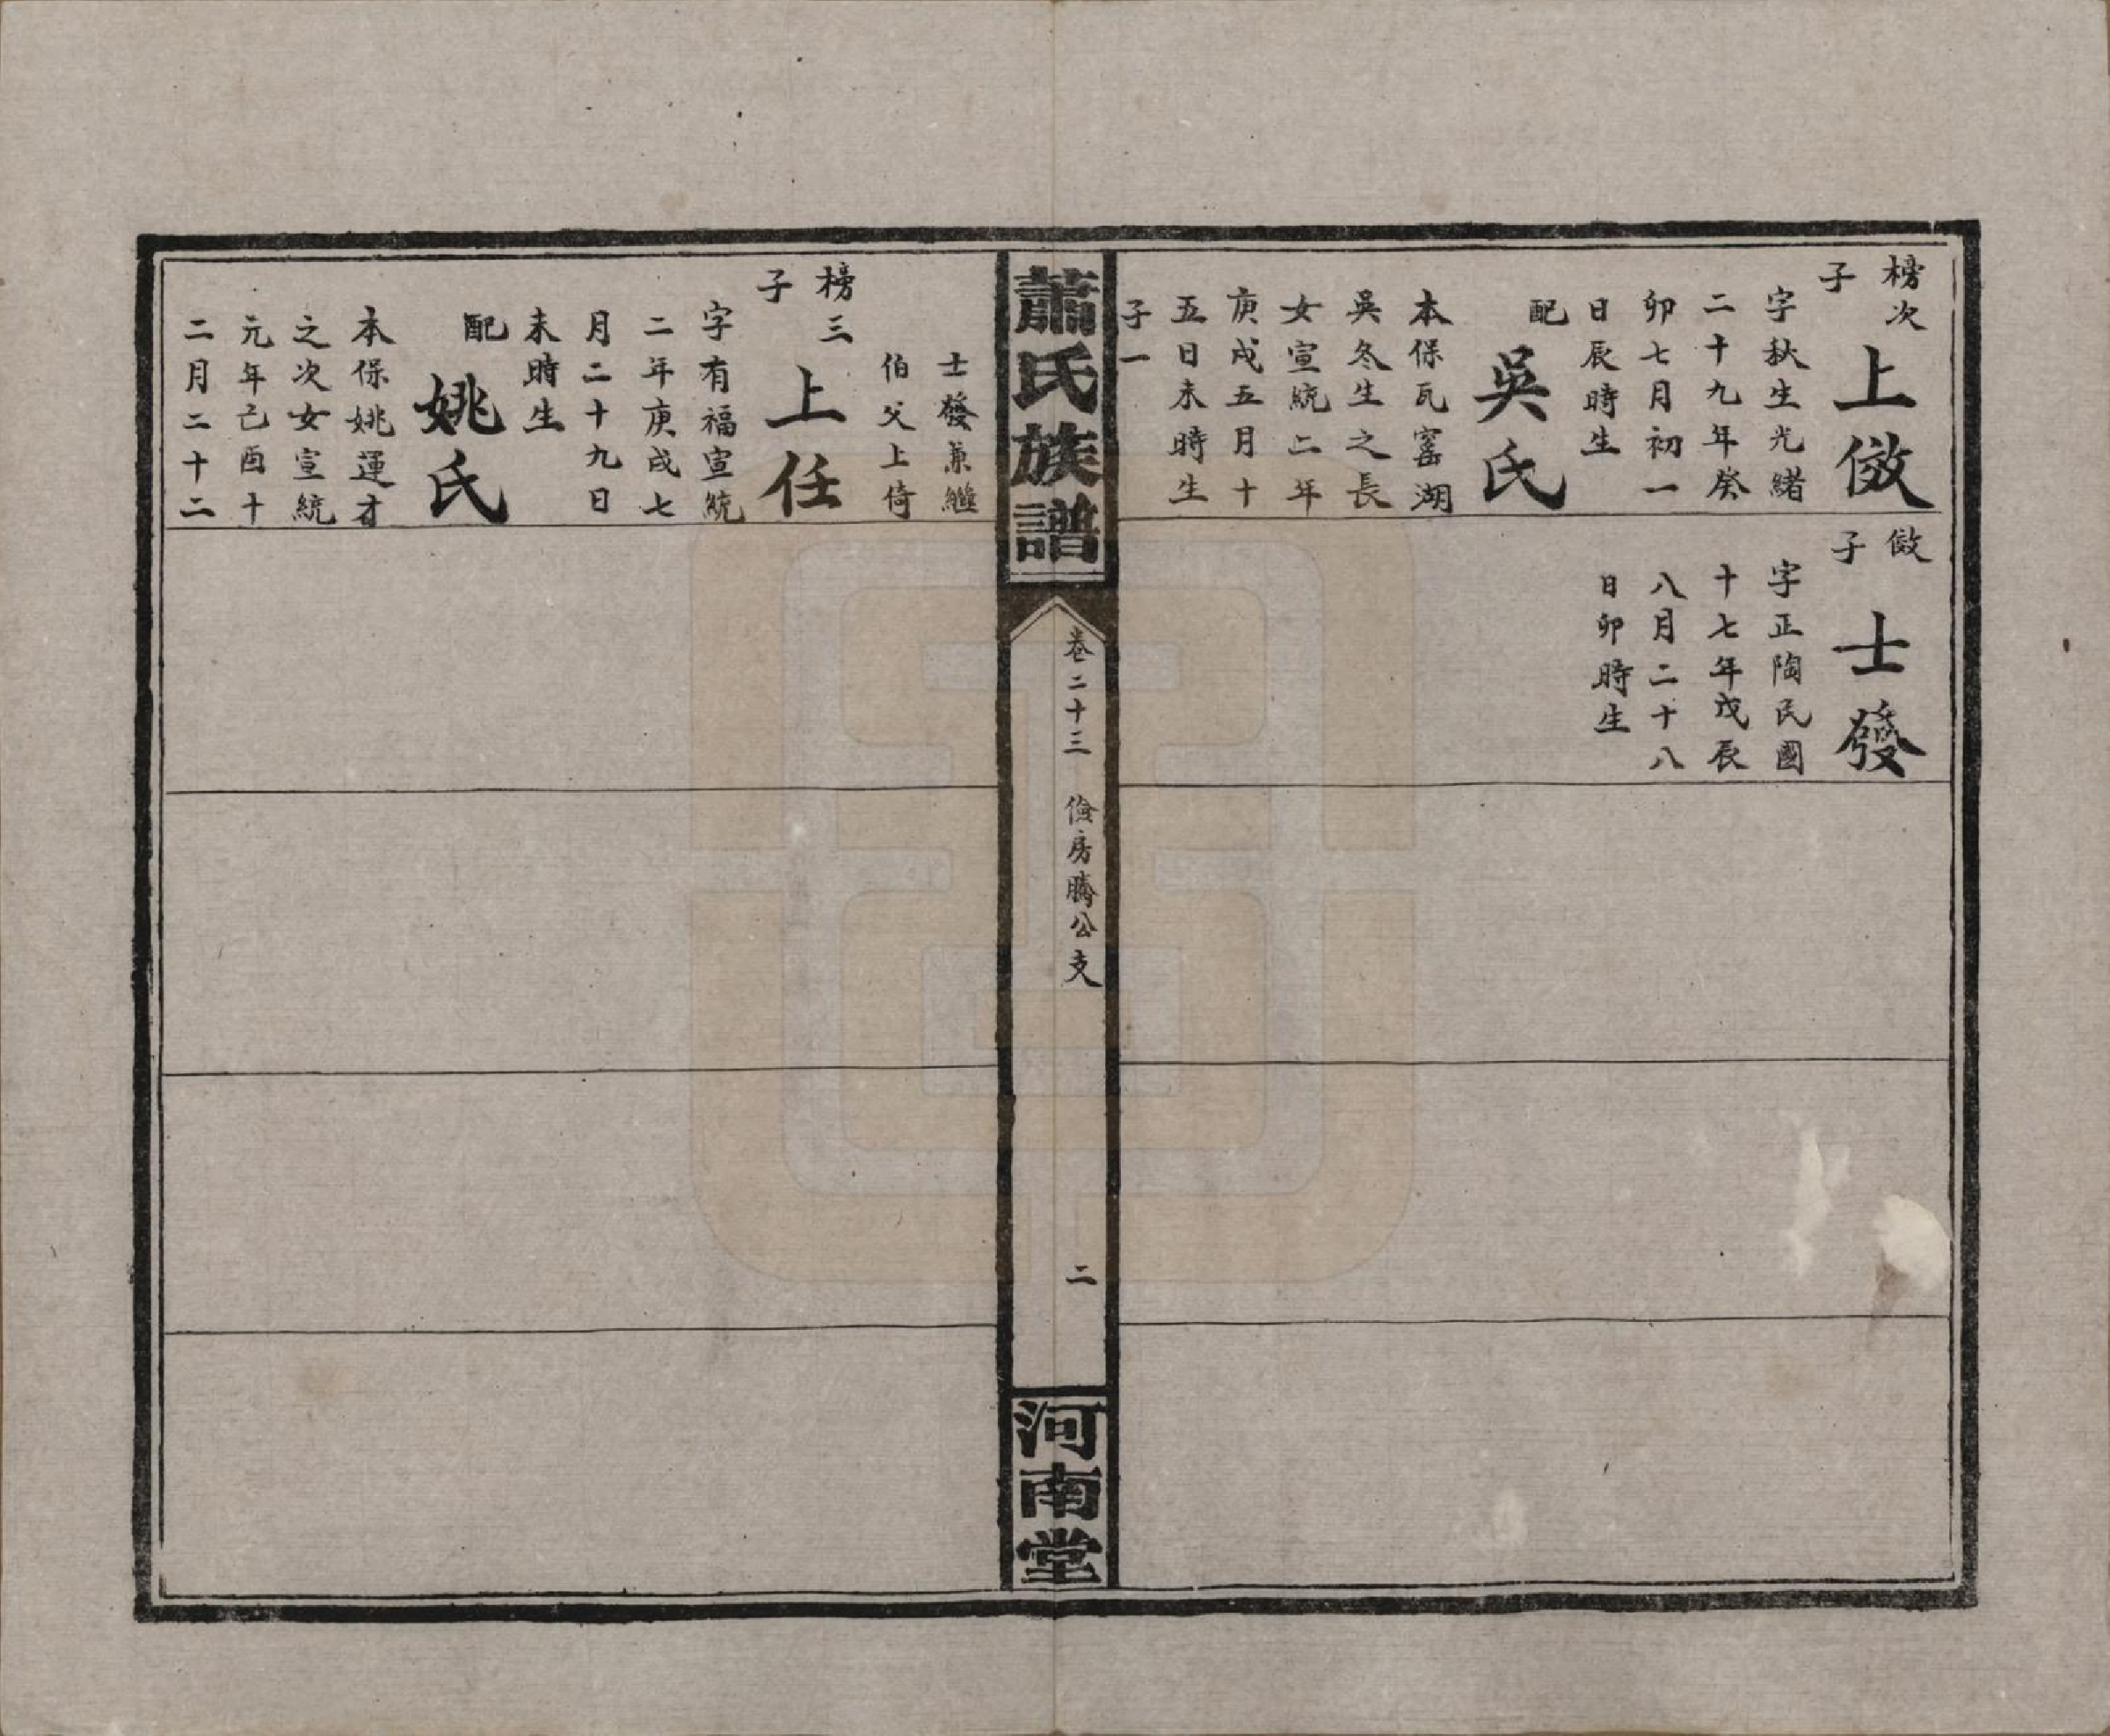 榜次子
上倣
字秋生光緒
二十九年癸
卯七月初一
日辰時生
配
吳氏
本保瓦窰湖
吳冬生之長
女宣統二年
庚戌五月十
五日未時生
子一
倣子
士發
字正陶民國
十七年戊辰
八月二十八
日卯時生
蕭氏族譜
卷二十三 儉房騰公支
二
河南堂
士發兼繼
伯父上倚
榜三子
上任
字有福宣統
二年庚戌七
月二十九日
未時生
配
姚氏
本保姚運才
之次女宣統
元年己酉十
二月二十二